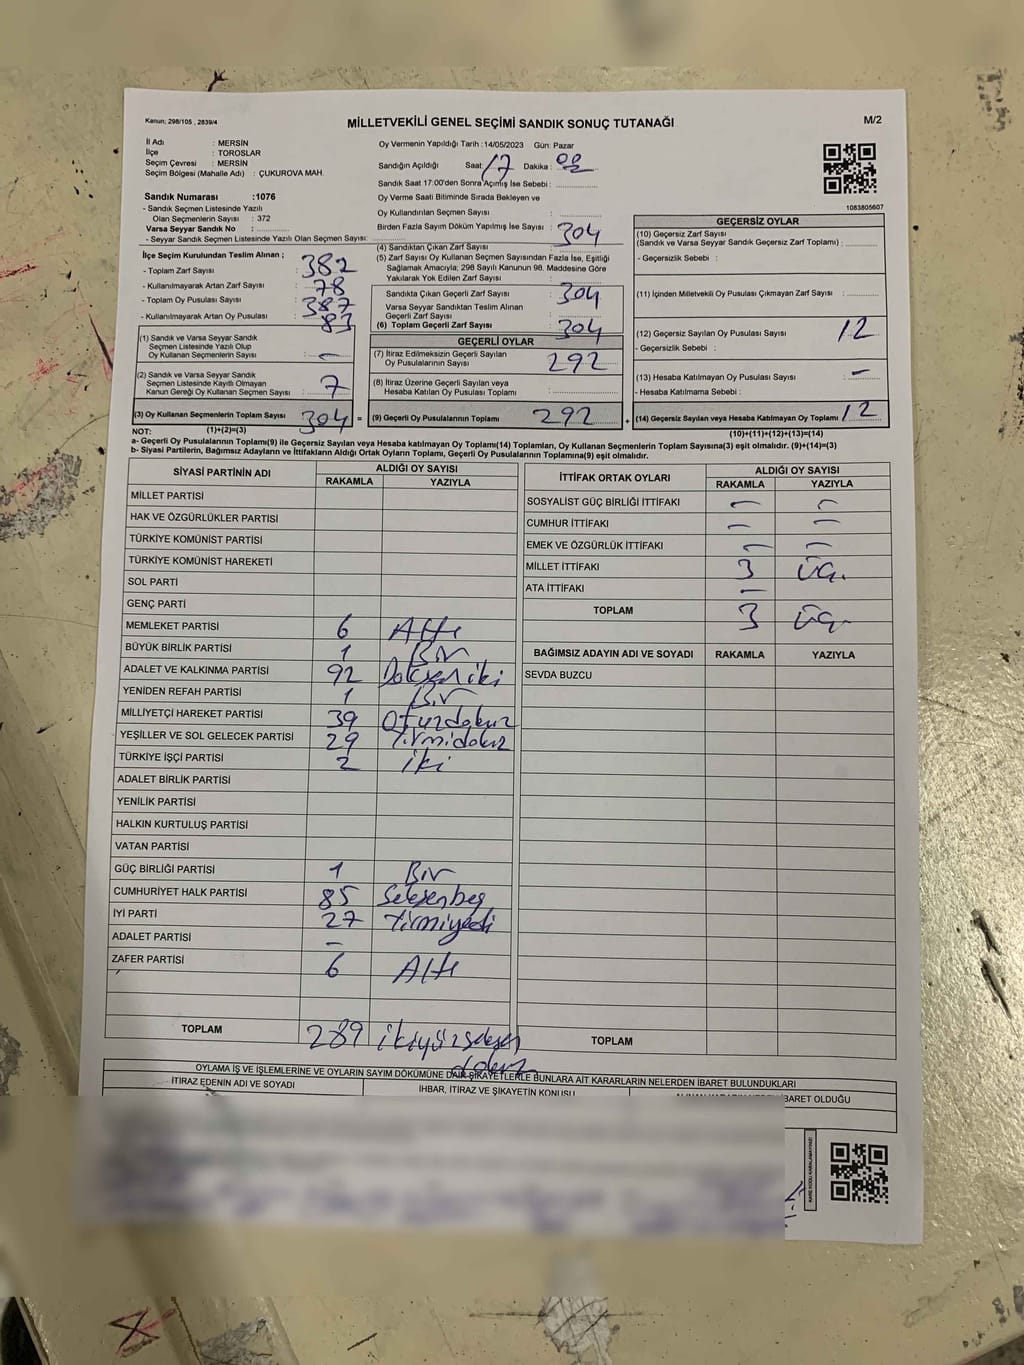 Kanun; 298/105 , 2839/4
MİLLETVEKİLİ GENEL SEÇİMİ SANDIK SONUÇ TUTANAĞI
M/2
İl Adı : MERSİN
İlçe : TOROSLAR
Seçim Çevresi : MERSİN
Seçim Bölgesi (Mahalle Adı) : ÇUKUROVA MAH.
Oy Vermenin Yapıldığı Tarih : 14/05/2023 Gün: Pazar
Sandığın Açıldığı Saat : 17 Dakika :
Sandık Saat 17:00'den Sonra Açılmış İse Sebebi :
Oy Verme Saati Bitiminde Sırada Bekleyen ve
Oy Kullandırılan Seçmen Sayısı :
Birden Fazla Sayım Döküm Yapılmış İse Sayısı :
1083805607
Sandık Numarası :1076
- Sandık Seçmen Listesinde Yazılı
Olan Seçmenlerin Sayısı : 372
Varsa Seyyar Sandık No :
- Seyyar Sandık Seçmen Listesinde Yazılı Olan Seçmen Sayısı:
İlçe Seçim Kurulundan Teslim Alınan ;
- Toplam Zarf Sayısı : 382
- Kullanılmayarak Artan Zarf Sayısı : 78
- Toplam Oy Pusulası Sayısı : 387
- Kullanılmayarak Artan Oy Pusulası : 83
(1) Sandık ve Varsa Seyyar Sandık
Seçmen Listesinde Yazılı Olup
Oy Kullanan Seçmenlerin Sayısı : –
(2) Sandık ve Varsa Seyyar Sandık
Seçmen Listesinde Kayıtlı Olmayan
Kanun Gereği Oy Kullanan Seçmen Sayısı : 7
(3) Oy Kullanan Seçmenlerin Toplam Sayısı 304 =
(4) Sandıktan Çıkan Zarf Sayısı : 304
(5) Zarf Sayısı Oy Kullanan Seçmen Sayısından Fazla İse, Eşitliği
Sağlamak Amacıyla; 298 Sayılı Kanunun 98. Maddesine Göre
Yakılarak Yok Edilen Zarf Sayısı :
Sandıkta Çıkan Geçerli Zarf Sayısı : 304
Varsa Seyyar Sandıktan Teslim Alınan
Geçerli Zarf Sayısı :
(6) Toplam Geçerli Zarf Sayısı : 304
GEÇERLİ OYLAR
(7) İtiraz Edilmeksizin Geçerli Sayılan
Oy Pusulalarının Sayısı : 292
(8) İtiraz Üzerine Geçerli Sayılan veya
Hesaba Katılan Oy Pusulası Toplamı :
(9) Geçerli Oy Pusulalarının Toplamı : 292 +
GEÇERSİZ OYLAR
(10) Geçersiz Zarf Sayısı
(Sandık ve Varsa Seyyar Sandık Geçersiz Zarf Toplamı) :
- Geçersizlik Sebebi :
(11) İçinden Milletvekili Oy Pusulası Çıkmayan Zarf Sayısı :
(12) Geçersiz Sayılan Oy Pusulası Sayısı : 12
- Geçersizlik Sebebi :
(13) Hesaba Katılmayan Oy Pusulası Sayısı : –
- Hesaba Katılmama Sebebi :
(14) Geçersiz Sayılan veya Hesaba Katılmayan Oy Toplamı : 12
NOT: (1)+(2)=(3) (10)+(11)+(12)+(13)=(14)
a- Geçerli Oy Pusulalarının Toplamı(9) ile Geçersiz Sayılan veya Hesaba katılmayan Oy Toplamı(14) Toplamları, Oy Kullanan Seçmenlerin Toplam Sayısına(3) eşit olmalıdır. (9)+(14)=(3)
b- Siyasi Partilerin, Bağımsız Adayların ve İttifakların Aldığı Ortak Oyların Toplamı, Geçerli Oy Pusulalarının Toplamına(9) eşit olmalıdır.
SİYASİ PARTİNİN ADI ALDIĞI OY SAYISI
RAKAMLA YAZIYLA
MİLLET PARTİSİ
HAK VE ÖZGÜRLÜKLER PARTİSİ
TÜRKİYE KOMÜNİST PARTİSİ
TÜRKİYE KOMÜNİST HAREKETİ
SOL PARTİ
GENÇ PARTİ
MEMLEKET PARTİSİ 6 Altı
BÜYÜK BİRLİK PARTİSİ 1 Bir
ADALET VE KALKINMA PARTİSİ 92 Doksan iki
YENİDEN REFAH PARTİSİ 1 Bir
MİLLİYETÇİ HAREKET PARTİSİ 39 Otuzdokuz
YEŞİLLER VE SOL GELECEK PARTİSİ 29 Yirmidokuz
TÜRKİYE İŞÇİ PARTİSİ 2 iki
ADALET BİRLİK PARTİSİ
YENİLİK PARTİSİ
HALKIN KURTULUŞ PARTİSİ
VATAN PARTİSİ
GÜÇ BİRLİĞİ PARTİSİ 1 Bir
CUMHURİYET HALK PARTİSİ 85 Seksenbeş
İYİ PARTİ 27 Yirmiyedi
ADALET PARTİSİ –
ZAFER PARTİSİ 6 Altı
TOPLAM 289 ikiyüzseksen
dokuz
İTTİFAK ORTAK OYLARI ALDIĞI OY SAYISI
RAKAMLA YAZIYLA
SOSYALİST GÜÇ BİRLİĞİ İTTİFAKI – –
CUMHUR İTTİFAKI – –
EMEK VE ÖZGÜRLÜK İTTİFAKI – –
MİLLET İTTİFAKI 3 üç.
ATA İTTİFAKI –
TOPLAM 3 üç.
BAĞIMSIZ ADAYIN ADI VE SOYADI RAKAMLA YAZIYLA
SEVDA BUZCU
TOPLAM
OYLAMA İŞ VE İŞLEMLERİNE VE OYLARIN SAYIM DÖKÜMÜNE DAİR ŞİKAYETLERLE BUNLARA AİT KARARLARIN NELERDEN İBARET BULUNDUKLARI
İTİRAZ EDENİN ADI VE SOYADI İHBAR, İTİRAZ VE ŞİKAYETİN KONUSU İBARET OLDUĞU